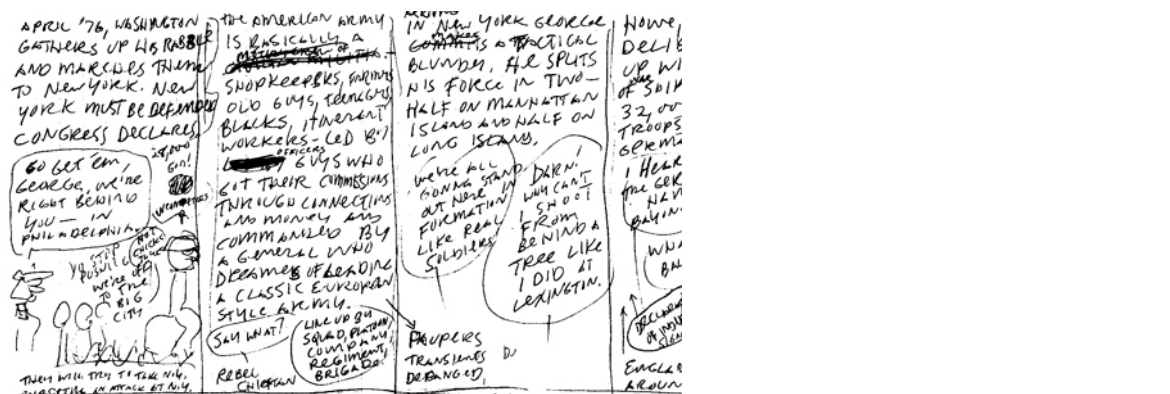 APRIL '76, WASHINGTON
GATHERS UP HIS RABBLE
AND MARCHES THEM
TO NEW YORK. NEW
YORK MUST BE DEFENDED
CONGRESS DECLARES.
GO GET 'EM,
GEORGE, WE'RE
RIGHT BEHIND
YOU — IN
PHILADELPHIA.
28,000
STOP
PUSHING
WE'RE OFF
TO THE
BIG
CITY
THEY WILL TRY TO TAKE N.Y.
AN ATTACK AT N.Y.
THE AMERICAN ARMY
IS BASICALLY A
SHOPKEEPERS, FARMERS
OLD GUYS, TEENAGERS
BLACKS, ITINERANT
WORKERS - LED BY
OFFICERS
GUYS WHO
GOT THEIR COMMISSIONS
THROUGH CONNECTIONS
AND MONEY AND
COMMANDED BY
A GENERAL WHO
DREAMES OF LEADING
A CLASSIC EUROPEAN
STYLE ARMY.
SAY WHAT?
LINE UP BY
SQUAD, PLATOON,
COMPANY,
REGIMENT,
BRIGADE.
REBEL
CHIEFTAN
ARRIVING
IN NEW YORK GEORGE
MAKES
A TACTICAL
BLUNDER. HE SPLITS
HIS FORCE IN TWO—
HALF ON MANHATTAN
ISLAND AND HALF ON
LONG ISLAND.
WE'RE ALL
GONNA STAND
OUT HERE IN
FORMATION
LIKE REAL
SOLDIERS
DARN!
WHY CAN'T
I SHOOT
FROM
BEHIND A
TREE LIKE
I DID AT
LEXINGTON.
PAUPERS
TRANSIENTS
DERANGED,
HOWE,
DELIB
UP WI
32,00
TROOPS
GERMA
I HEAR
THE GER
HAV
WHA
BA
DECLARA
OF INDE
ENGLA
AROUN